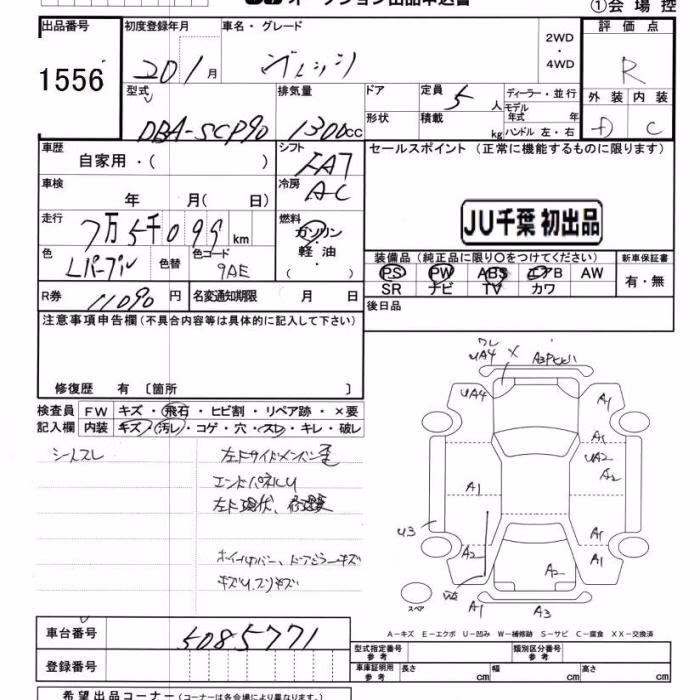 オークション出品申込書
①会場控
出品番号
1556
初度登録年月
20 1月
車名・グレード
ヴィッツ
2WD
・
4WD
評価点
R
外装 内装
D C
型式
DBA-SCP90
排気量
1300cc
ドア
形状
定員
5人
積載
kg
ディーラー・並行
モデル年式 年
ハンドル 左・右
車歴
自家用・( )
シフト
FAT
セールスポイント (正常に機能するものに限ります)
車検
年 月( 日)
冷房
AC
JU千葉 初出品
走行
7万5千099km
燃料
ガソリン・軽油・( )
色
Lパープル
色替
色コード
9AE
装備品 (純正品に限り〇をつけてください)
PS PW ABS エアB AW
SR ナビ TV カワ
新車保証書
有・無
R券
11090円
名変通知期限 月 日
後日品
注意事項申告欄 (不具合内容等は具体的に記入して下さい)
修復歴 有 〔箇所 〕
検査員記入欄
FW キズ・飛石・ヒビ割・リペア跡・×要
内装 キズ・汚レ・コゲ・穴・スレ・キレ・破レ
シートスレ
エンドパネルU
UA4 X
UA4
A1
A1
UA2
A2
A1
U3
A2
A1
A1
A2
A1
A3
スペア
A-キズ E-エクボ U-凹み W-補修跡 S-サビ C-腐食 XX-交換済
車台番号
5085771
登録番号
型式指定番号参考
類別区分番号参考
車庫証明用参考 長さ cm 幅 cm 高さ cm
希望出品コーナー (コーナーは各会場により異なります。)